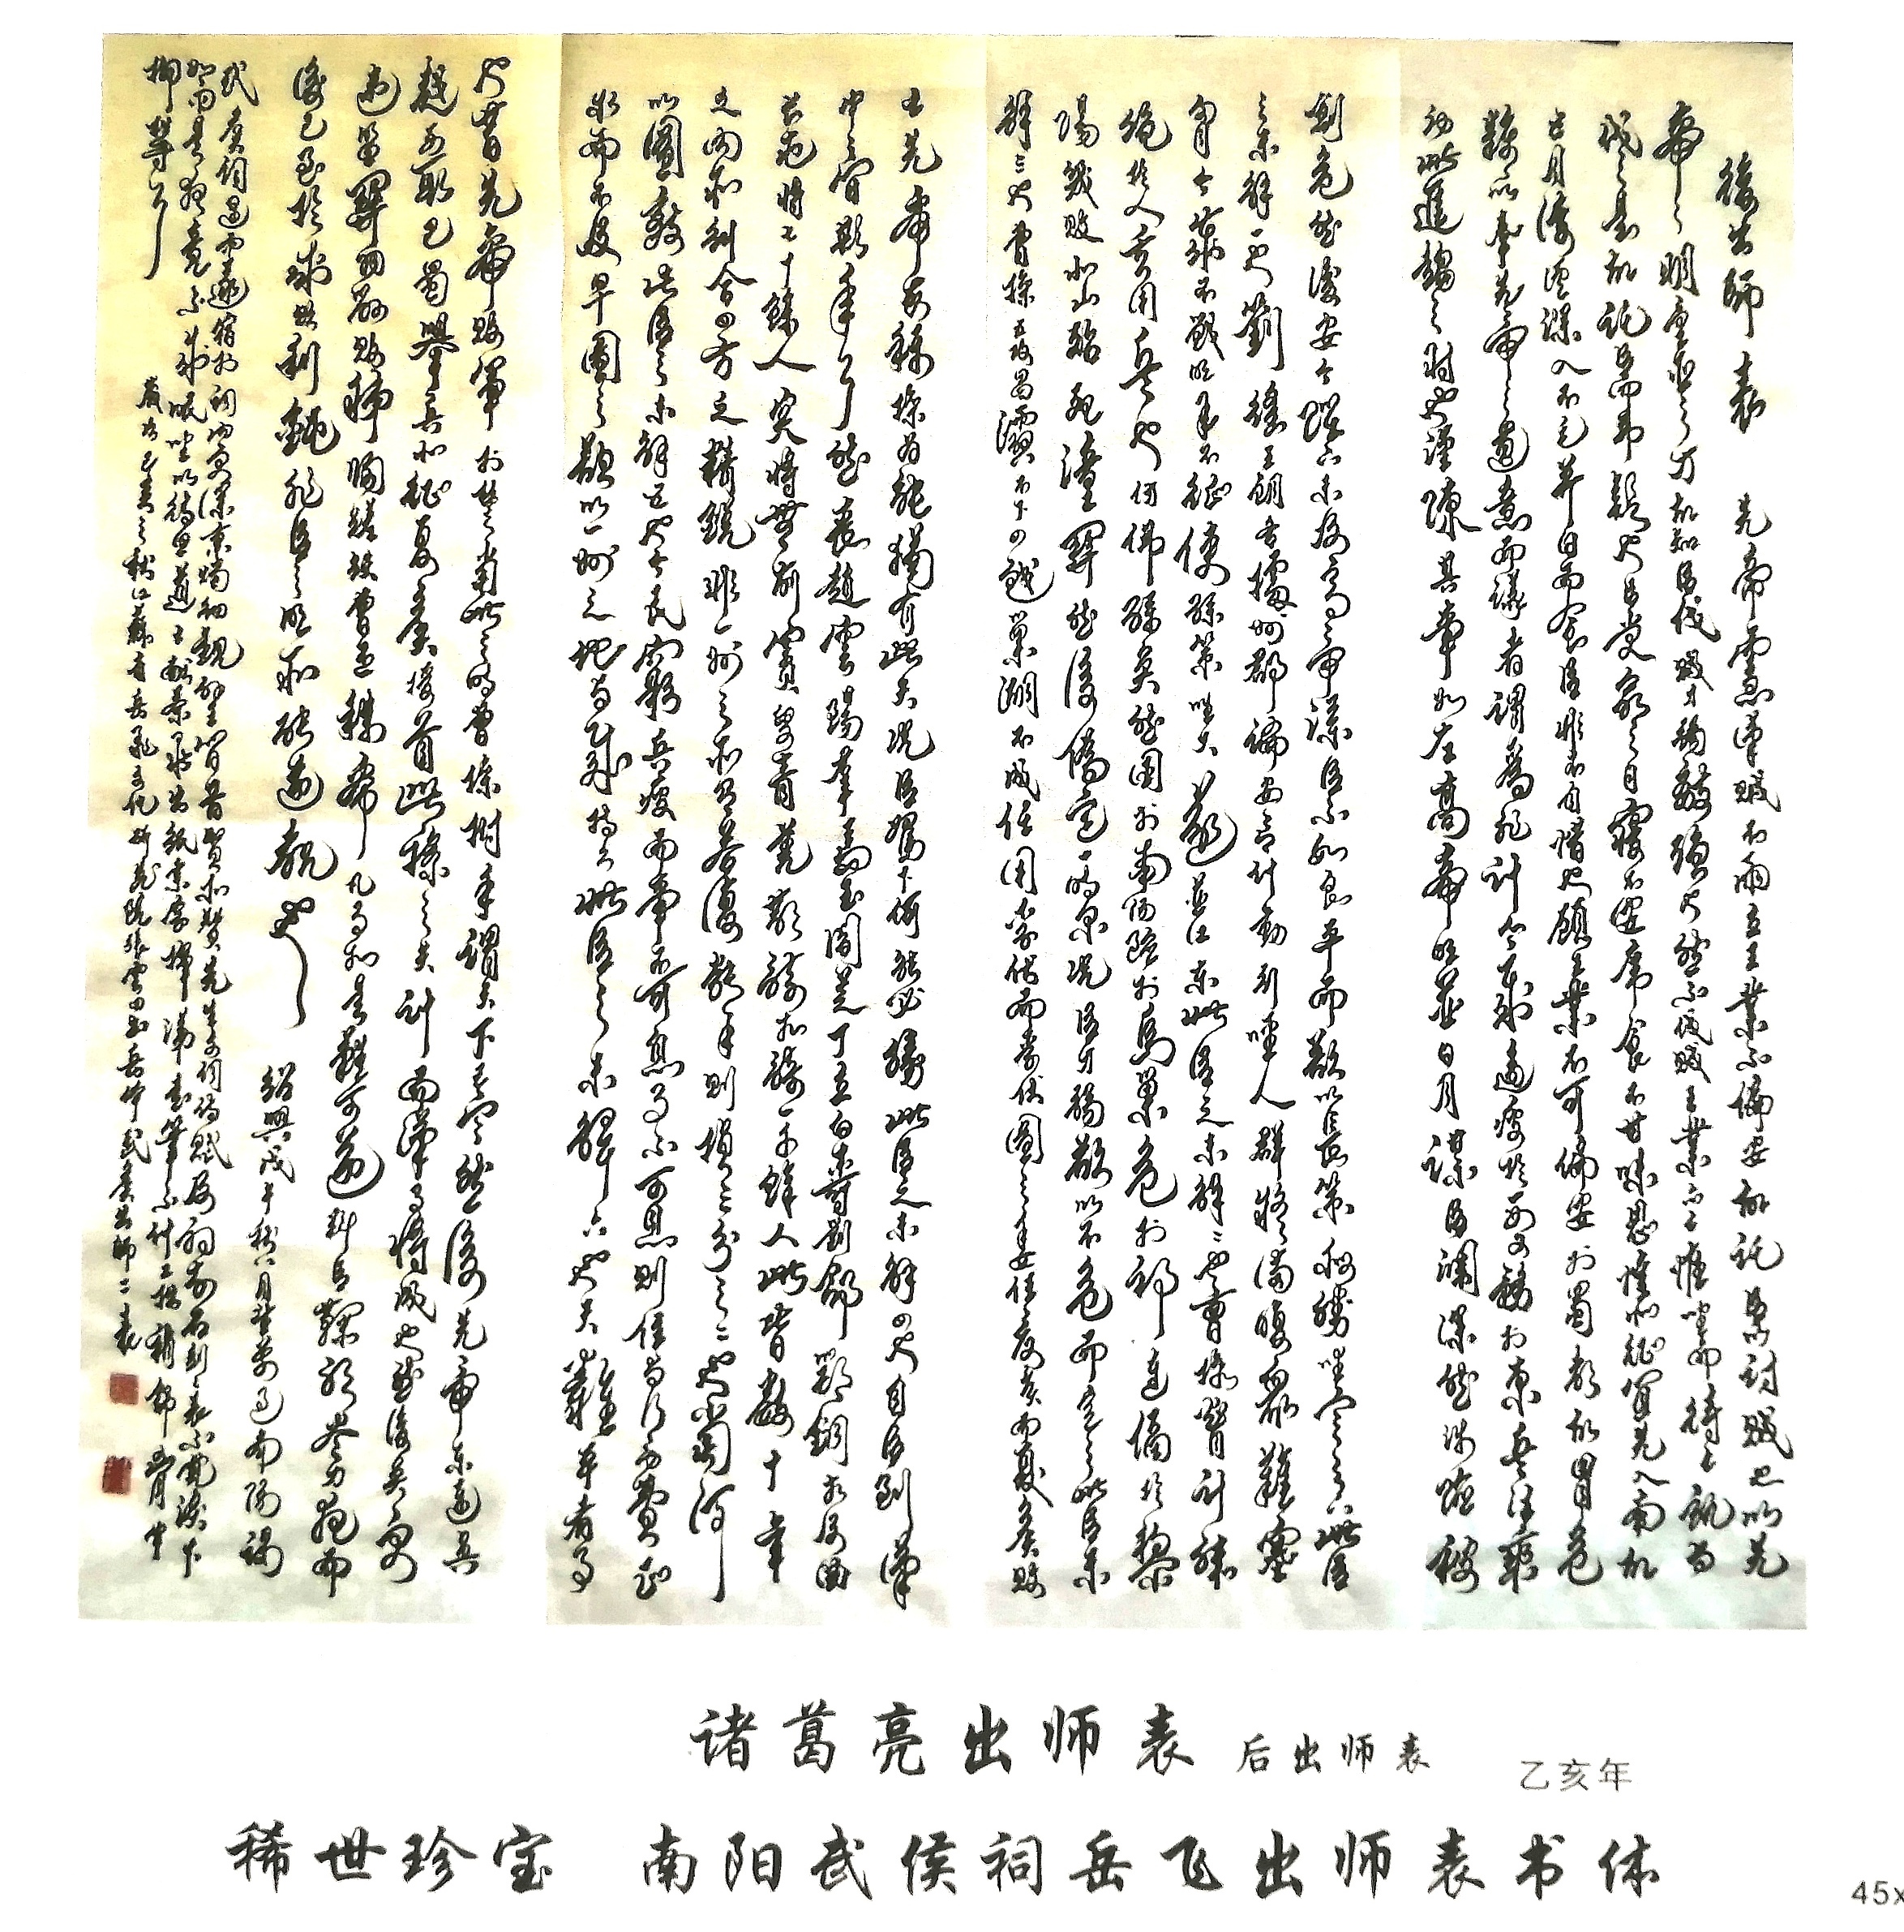 後出師表 先帝慮漢賊不兩立王業不偏安故託臣以討賊也以先
帝之明量臣之才故知臣伐賊才弱敵強也然不伐賊王業亦亡惟坐而待亡孰与
伐之是故託臣而弗疑也臣受命之日寢不安席食不甘味思惟北征宜先入南故
五月渡瀘深入不毛并日而食臣非不自惜也顧王業不可偏安於蜀都故冒危
難以奉先帝之遺意而議者謂為非計今賊適疲於西又務於東兵法乘
勞此進趨之時也謹陳其事如左高帝明並日月謀臣淵深然涉險被
創危然後安今陛下未及高帝謀臣不如良平而欲以長策取勝坐定天下此臣
之未解一也劉繇王朗各據州郡論安言計動引聖人群疑滿腹眾難塞
胸今歲不戰明年不征使孫策坐大遂並江東此臣之未解二也曹操智計殊
絕於人其用兵也彷彿孫吳然困於南陽險於烏巢危於祁連偪於黎
陽幾敗北山殆死潼關然後偽定一時耳況臣才弱而欲以不危而定之此臣之未
解三也曹操五攻昌霸不下四越巢湖不成任用李服而李服圖之委任夏侯而夏侯敗
亡先帝每稱操為能猶有此失況臣駑下何能必勝此臣之未解四也自臣到漢
中中間期年耳然喪趙雲陽羣馬玉閻芝丁立白壽劉郃鄧銅等及曲
長屯將七十餘人突將無前賨叟青羌散騎武騎一千餘人此皆數十年
之內所糾合四方之精銳非一州之所有若復數年則損三分之二也當何
以圖敵此臣之未解五也今民窮兵疲而事不可息事不可息則住與行勞費正
等而不及早圖之欲以一州之地與賊持久此臣之未解六也夫難平者事
也昔先帝敗軍於楚當此之時曹操拊手謂天下已定然後先帝東連吳
越西取巴蜀舉兵北征夏侯授首此操之失計而漢事將成也然後吳更
違盟關羽毀敗秭歸蹉跌曹丕稱帝凡事如是難可逆料臣鞠躬盡力死而
後已至於成敗利鈍非臣之明所能逆覩也
紹興戊午秋八月望前過南陽謁
武侯祠遇雨遂宿於祠內更深秉燭細觀壁間昔賢所贊先生文詞詩賦及祠前石刻二表不覺淚下
如雨是夜竟不成眠坐以待旦道士獻茶畢出紙索字揮涕走筆不計工拙稍舒胸中
抑鬱耳
歲次己亥之秋江蘇省岳飛文化研究院張雲書岳飛武侯出師二表
诸葛亮出师表 后出师表 乙亥年
稀世珍宝 南阳武侯祠岳飞出师表书体
45x